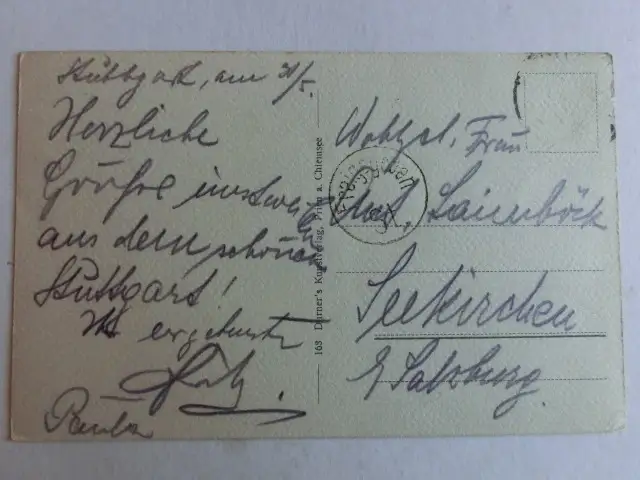 Stuttgart, am 31/5.
Herzliche
Grüße
aus dem schönen
Stuttgart!
ergebenster
Fritz.
Paula
163 Dorner's Kunstverlag, Prien a. Chiemsee
Wohlgeb. Frau
Laimböck
Seekirchen
b/ Salzburg.